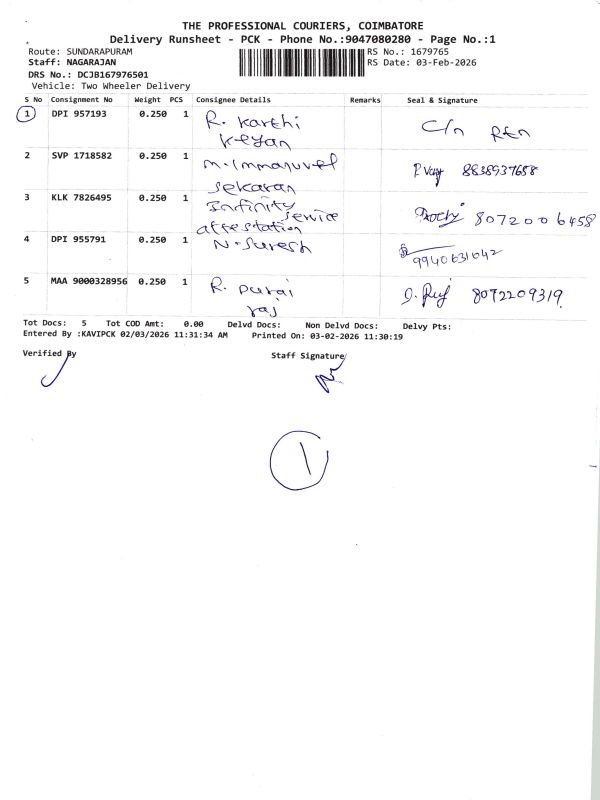 THE PROFESSIONAL COURIERS, COIMBATORE
Delivery Runsheet - PCK - Phone No.:9047080280 - Page No.:1
Route: SUNDARAPURAM RS No.: 1679765
Staff: NAGARAJAN RS Date: 03-Feb-2026
DRS No.: DCJB167976501
Vehicle: Two Wheeler Delivery
S No Consignment No Weight PCS Consignee Details Remarks Seal & Signature
1 DPI 957193 0.250 1 R. Karthi C/n
Keyan
2 SVP 1718582 0.250 1 M. Immanuvel 8838937658
Sekaran
3 KLK 7826495 0.250 1 Infinity Service 8072006458
attestation
4 DPI 955791 0.250 1 N. Suresh 9940631642
5 MAA 9000328956 0.250 1 R. Durai 8072209319
raj
Tot Docs: 5 Tot COD Amt: 0.00 Delvd Docs: Non Delvd Docs: Delvy Pts:
Entered By :KAVIPCK 02/03/2026 11:31:34 AM Printed On: 03-02-2026 11:30:19
Verified By Staff Signature
1